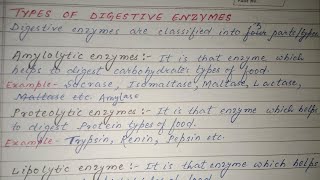 TYPES OF DIGESTIVE ENZYMES
Digestive enzymes are classified into parts/types.
Amylolytic enzymes:- It is that enzyme which
helps to digest carbohydrates types of food.
Example- Sucrase, Isomaltase, Maltase, Lactase,
Maltase etc. Amylase
Proteolytic enzymes:- It is that enzyme which helps
to digest Protein types of food.
Example- Trypsin, Renin, Pepsin etc.
Lipolytic enzyme:- It is that enzyme which helps
food.